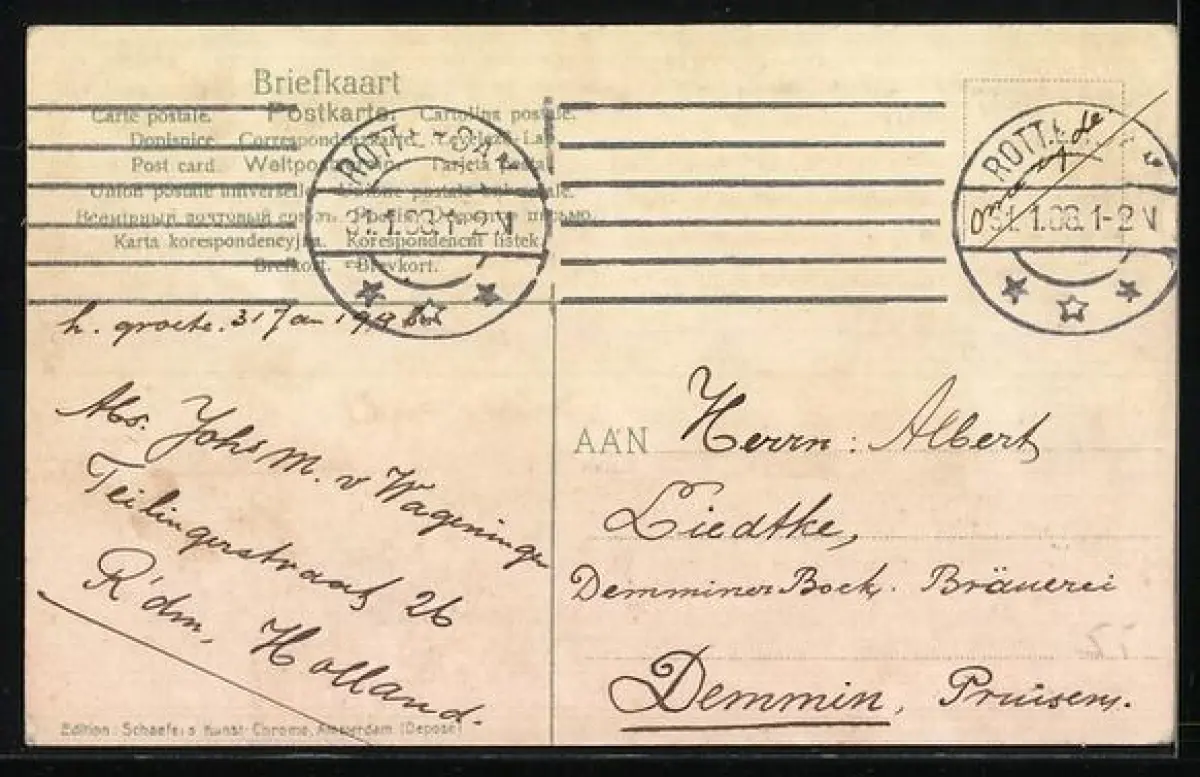 Briefkaart
Carte postale. Postkarte. Cartolina postale.
Dopisnice Correspondenzkarte
Post card. Weltpost Tarjeta postal
Union postale universelle. postale
Всемирный почтовый
Karta korespondencyjna. Korespondencni listek.
Brefkort. Brevkort.
31.1.08.1-2N
ROTT
31.1.08.1-2N
h. groete. 31 Jan
Abs. Johs M. v Wageningen
Teilingerstraat 26
R'dm, Holland.
AAN Herrn: Albert
Liedtke,
Demminer Bock. Bräuerei
Demmin, Pruisens.
Edition: Schaefer's Kunst-Chromo, Amsterdam (Deposé)